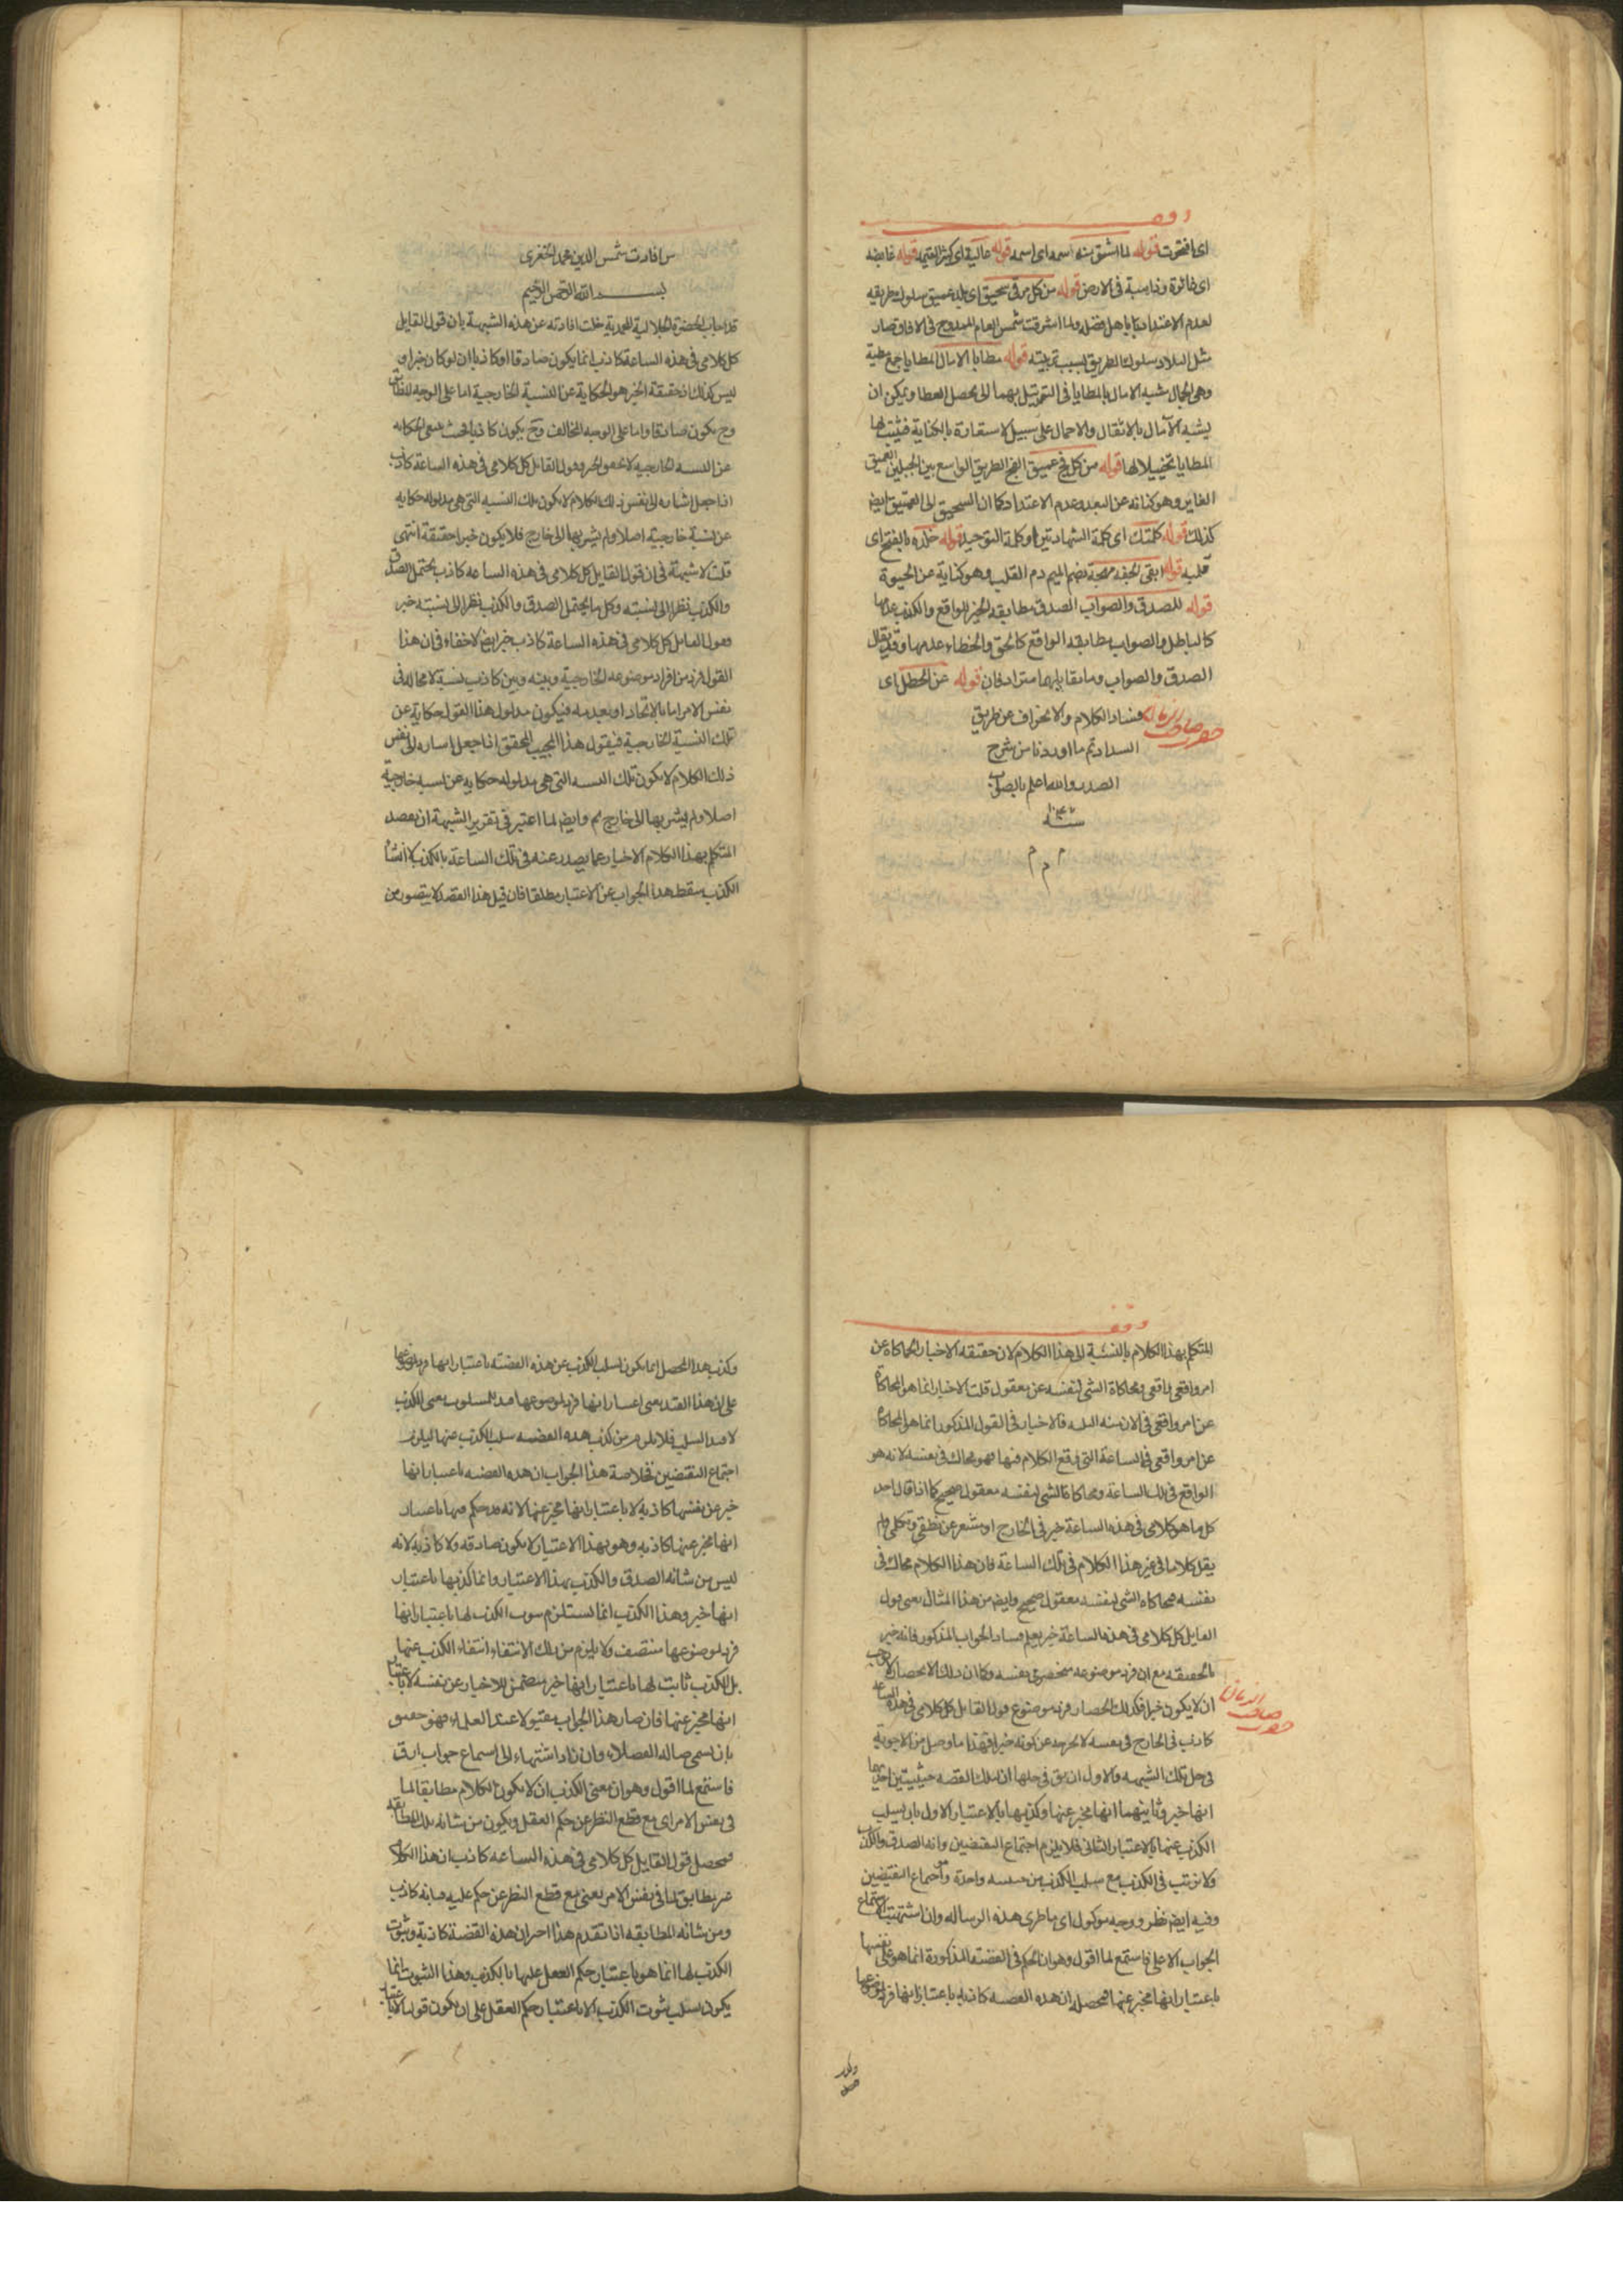 وقف
اى افتخرت قوله لما اشتق منه اسمه اى اسمه قوله عالية اى كثيرالقيمه قوله غايضه
اى غائرة وذاهبة فى الارض قوله من كل مرقى سحيق اى بلد عميق سلوك طريقه
لعدم الاعتداد بها باهل فضله ولما اشرقت شمس العام الممدوح فى الافاق صار
مثل البلاد سلوك الطريق بسبب تربيته قوله مطايا الامال المطايا جمع مطية
وهى الجمال شبه الامال بالمطايا فى التوسل بهما الى تحصل العطا ويمكن ان
يشبه الآمال بالاثقال والاحمال على سبيل الاستعارة بالكناية فيثبت لها
المطايا تخييلا لها قوله من كل فج عميق الفج الطريق الواسع بين الجبلين العميق
الغاير وهو كناية عن البعد وعدم الاعتداد كما ان السحيق الى العميق ايض
كذلك قوله كلمتك اى كلمة الشهادتين او كلمة التوحيد قوله خلده بالفتح اى
قلبه قوله ابقى لحيفه مهجة بضم الميم دم القلب وهو كناية عن الحيوة
قوله للصدق والصواب الصدق مطابقه الخبر للواقع والكذب عدمها
كالباطل والصواب مطابقه الواقع كالحق والخطاء عدمها وقد يقال
الصدق والصواب وما يقابلهما مترادفان قوله عن الخطل اى
فساد الكلام والانحراف عن طريق
السداد تم ما اوردنا من شرح
الصدر والله اعلم بالصواب
سنه
م م م
من افادت شمس الدين محمد الخفرى
بسم الله الرحمن الرحيم
قد اجاب الحضرة الجلالية المحمدية خلت افادته عن هذه الشبهة بان قول القايل
كل كلامى فى هذه الساعة كاذب انما يكون صادقا او كاذبا ان لو كان خبرا و
ليس كذلك اذ حقيقة الخبر هو الحكاية عن النسبة الخارجية اما على الوجه المطابق
وح يكون صادقا واما على الوجه المخالف وح يكون كاذبا فحيث ينتفى الحكايه
عن النسبه الخارجيه لا يتحقق الخبر وقول القايل كل كلامى فى هذه الساعة كاذب
اذا جعل اشاره الى نفس ذلك الكلام لا يكون تلك النسبه التى هى مدلوله حكايه
عن نسبة خارجية اصلا ولم يشر بها الى خارج فلا يكون خبرا حقيقة انتهى
قلت لا شبهة فى ان قول القايل كل كلامى فى هذه الساعه كاذب يحتمل الصدق
والكذب نظرا الى نسبته وكل ما يحتمل الصدق والكذب نظرا الى نسبته خبر
وقول القايل كل كلامى فى هذه الساعة كاذب خبر ايض لا خفاء فى ان هذا
القول فرد من افراد موضوعه الخارجية وبينه وبين كاذب نسبة لا محاله فى
نفس الامر اما بالاتحاد او بعدمه فيكون مدلول هذا القول حكاية عن
تلك النسبة الخارجية فيقول هذا المجيب المحقق اذا جعل اشاره الى نفس
ذلك الكلام لا يكون تلك النسبه التى هى مدلوله حكايه عن نسبه خارجية
اصلا ولم يشر بها الى خارج لم وايض لما اعتبر فى تقرير الشبهة ان يقصد
المتكلم بهذا الكلام الاخبار عما يصدر عنه فى تلك الساعة بالكذب لا انشاء
الكذب سقط هذا الجواب عن الاعتبار مطلقا فان قيل هذا القصد لا يتصور من
وقف
المتكلم بهذا الكلام بالنسبة الى هذا الكلام لان حقيقه الاخبار المحاكاة عن
امر واقعى واقعى ومحاكاة الشى لنفسه عن معقول قلت الاخبار انما هو المحاكاة
عن امر واقعى فى الازمنه الثلثه فالاخبار فى القول المذكور انما هو المحاكاة
عن امر واقعى فى الساعة التى وقع الكلام فيها فهو محاك فى نفسه لانه هو
الواقع فى تلك الساعة ومحاكاة الشى لنفسه معقول صحيح كما اذا قال احد
كل ما هو كلامى فى هذه الساعة خبر فى الخارج او مشعر عن نطقى وتكلمى ولم
يقل كلاما فى غير هذا الكلام فى تلك الساعة فان هذا الكلام محاك فى
نفسه فمحاكاه الشى لنفسه معقول صحيح وايض من هذا المثال يعنى قول
القايل كل كلامى فى هذه الساعة خبر يعلم فساد الجواب المذكور فانه خبر
بالحقيقه مع ان فرد موضوعه منحصر فى نفسه وكما ان ذلك الانحصار لا يوجب
ان لا يكون خبرا فكذلك انحصار فرد موضوع قول القايل كل كلامى فى هذه الساعه
كاذب فى الخارج فى نفسه لا يخرجه عن كونه خبرا فهذا ما وصل من الاجوبة
فى حل تلك الشبهه والاول ان يق فى حلها ان لتلك القضه حيثيتين احديهما
انها خبر وثانيتهما انها مخبر عنها وكذبها بالاعتبار الاول بان يسلب
الكذب عنها بالاعتبار الثانى فلا يلزم اجتماع النقيضين وانه الصدق والكذب
ولا ترتب فى الكذب مع سلب الكذب من حيثيه واحدة واجتماع النقيضين
وفيه ايض نظر ووجهه موكول اى ماظرى هذه الرساله وان اشتهيت استماع
الجواب الاعلى فاستمع لما اقول وهو ان الحكم فى القضيه المذكورة انما هو على نفسها
باعتبار انها مخبر عنها فمحصله ان هذه القضيه كاذبه باعتبار انها فرد لموضوعها
وكذب هذا المحصل انما يكون بسلب الكذب عن هذه القضيه باعتبار انها فرد لموضوعها
على ان هذا القيد يعنى اعتبار انها فرد لموضوعها قيد للمسلوب يعنى الكذب
لا قيد السلب فلا يلزم من كذب هذه القضيه سلب الكذب عنها ليلزم
اجتماع النقيضين فخلاصة هذا الجواب ان هذه القضيه باعتبار انها
خبر عن نفسها كاذبه لا باعتبار انها مخبر عنها لانه قد حكم فيها باعتبار
انها مخبر عنها كاذبه وهو بهذا الاعتبار لا يكون صادقه ولا كاذبه لانه
ليس من شانه الصدق والكذب بهذا الاعتبار وانما كذبها باعتبار
انها خبر وهذا الكذب انما يستلزم سلب الكذب لها باعتبار انها
فرد لموضوعها منتصف ولا يلزم من ذلك الانتفاء انتفاء الكذب عنها
بل الكذب ثابت لها باعتبار انها خبر متضمن للاخبار عن نفسه لا باعتبار
انها مخبر عنها فان صار هذا الجواب مقبولا عند العلماء فهو حقيق
بان اسمى ضاله الفضلاء وان زاد اشتهاء الى استماع جواب ادق
فاستمع لما اقول وهو ان معنى الكذب ان لا يكون الكلام مطابقا لما
فى نفس الامر اى مع قطع النظر عن حكم العقل ويكون من شانه تلك المطابقه
فمحصل قول القايل كل كلامى فى هذه الساعه كاذب ان هذا الكلام
غير مطابق لما فى نفس الامر يعنى مع قطع النظر عن حكم عليه بانه كاذب
ومن شانه المطابقه اذا تقدم هذا اخبر ان هذه القضية كاذبة وثبوت
الكذب لها انما هو باعتبار حكم العقل عليها بالكذب وهذا الثبوت انما
يكون بسلب ثبوت الكذب الا باعتبار حكم العقل على ان يكون قولنا لا باعتبار